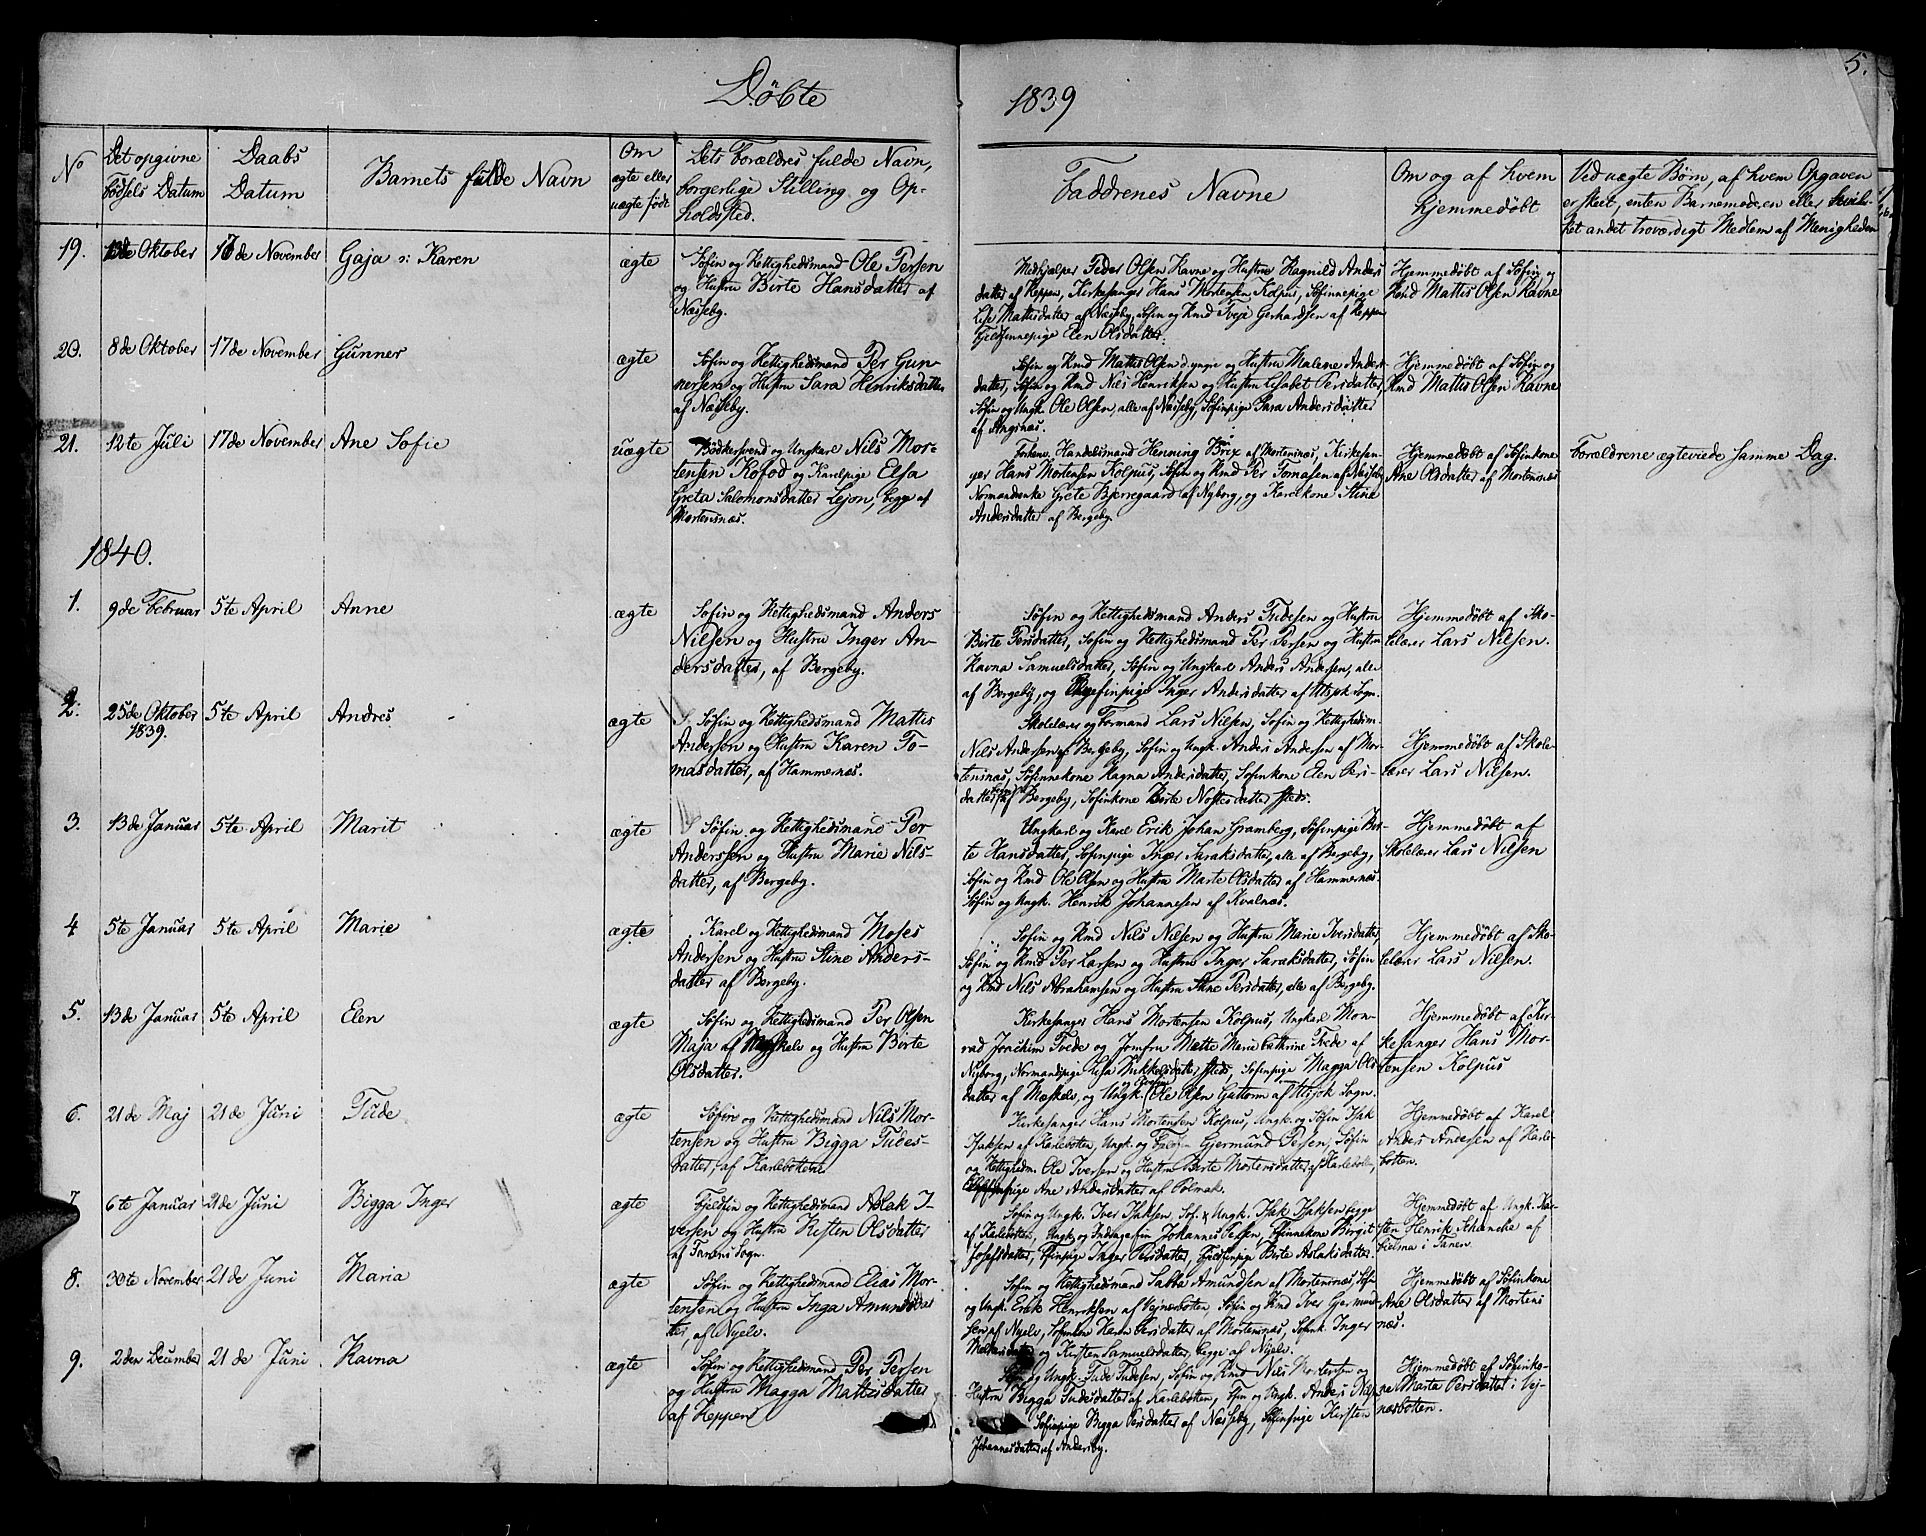 Döbte
1839
5.
No
Det opgivne
födsels Datum
Daabs
Datum
Barnets fulde Navn
Om
ægte eller
uægte födt
Dets Forældres fulde Navn,
borgerlige Stilling og Op-
holdsted.
Faddrenes Navne
Om og af hvem
hjemmedöbt
Ved uægte Börn, af hvem Opgaven
er skeet, enten Barnemoderen eller
het andet troværdigt Medlem af Menigheden
19.
Oktober
17de November
Gaja Karen
ægte
Söfin og Rettighedsmand Ole Persen
og Hustru Birte Hansdatter af
Næiseby.
Medhjælper Peder Olsen Ravne og Hustru Ragnild Anders
datter af Reppen, Kirkesanger Hans Mortensen Kolpus, Söfinnepige
Lise Mattisdatter af Næiseby, Söfin og Rmd Gerhardsen af Reppen
Fjeldfinnepige Elen Olsdatter.
Hjemmedöbt af Söfin og
Rmd Mattis Olsen Ravne
20.
8de Oktober
17de November
Gunner
ægte
Söfin og Rettighedsmand Per Gun-
nersen og Hustru Sara Henriksdatter
af Næiseby.
Söfin og Rmd Mattis Olsen d. ynge og Hustru Malene Anders
datter, Söfin og Rmd Nils Henriksen og Hustru Lisabet Persdatter,
Söfin og Ungk. Ole Olsen, alle af Næiseby, Söfinpige Sara Andersdatter
af Angsnæs.
Hjemmedöbt af Söfin og
Rmd Mattis Olsen Ravne
21.
12te Juli
17de November
Ane Sofie
uægte
Bödkersvend og Ungkarl Nils Mor-
tensen Kofod og Karelpige Elsa
Greta Salomonsdatter Lejon, begge af
Mortensnæs.
Forhenv. Handelsmand Henning Brix af Mortensnæs, Kirkesan-
ger Hans Mortensen Kolpus, Söfin og Rmd Per Tomasen af Næiseby
Normandenke Grete Bjerregaard af Nyborg, og Karelkone Stine
Andersdatter af Bergeby.
Hjemmedöbt af Söfinkone
Ane Olsdatter af Mortensnæs
Forældrene ægteviede samme Dag.
1840.
1.
9de Februar
5te April
Anne
ægte
Söfin og Rettighedsmand Anders
Nilsen og Hustru Inger An-
dersdatter, af Bergeby.
Söfin og Rettighedsmand Anders Tudesen og Hustru
Birte Persdatter, Söfin og Rettighedsmand Per Persen og Hustru
Ravna Samuelsdatter, Söfin og Ungkarl Anders Andersen, alle
af Bergeby, og Inger Andersdatter af Utsjok Sogn.
Hjemmedöbt af Sko-
lelærer Lars Nilsen.
2.
25de Oktober
1839.
5te April
Andres
ægte
Söfin og Rettighedsmand Mattis
Andersen og Hustru Karen To-
masdatter, af Hammernæs.
Skolelærer og Formand Lars Nilsen, Söfin og Rettighedsm.
Nils Andersen Bergeby, Söfin og Ungk. Anders Andersen af Mor-
tensnæs, Söfinnekone Ragna Andersdatter, Söfinkone Elen Pers-
datter af Bergeby, Söfinkone Birte Nolsdatter steds.
Hjemmedöbt af Skole-
lærer Lars Nilsen.
3.
13de Januar
5te April
Marit
ægte
Söfin og Rettighedsmand Per
Anderssen og Hustru Marie Nils-
datter, af Bergeby.
Ungkarl og Karel Erik Johan Gramberg, Söfinpige Bir-
te Hansdatter, Söfinpige Inger Saraksdatter, alle af Bergeby,
Söfin og Rmd Ole Olsen og Hustru Marte Olsdatter af Hammernæs.
Söfin og Ungk. Henrik Johannesen af Kvalnæs.
Hjemmedöbt af
Skolelærer Lars Nilsen
4
5te Januar
5te April
Marie
ægte
Karel og Rettighedsmand Moses
Andersen og Hustru Stine Anders-
datter af Bergeby.
Söfin og Rmd Nils Nilsen og Hustru Marie Iversdatter,
Söfin og Rmd Per Larsen og Hustru Inger Saraksdatter, Söfin
og Rmd Nils Abrahamsen og Hustru Stine Persdatter, alle af Bergeby.
Hjemmedöbt af Sko-
lelærer Lars Nilsen.
5.
13de Januar
5te April
Elen
ægte
Söfin og Rettighedsmand Per Olsen
Maja af Mæskelv og Hustru Birte
Olsdatter.
Kirkesanger Hans Mortensen Kolpus, Ungkarl Mon-
rad Joachim Tvede og Jomfru Mette Marie Cathrine Tvede af
Nyborg, Normandspige Lisa Mikkelsdatter steds, Söfinpige Magga Ols
datter af Mæskelv, og Ungk. Ole Olsen Guttorm af Utsjok Sogn.
Hjemmedöbt af Kir-
kesanger Hans Mor-
tensen Kolpus
6.
21de Maj
21de Juni
Tude
ægte
Söfin og Rettighedsmand Nils Mor-
tensen og Hustru Bigga Tudes-
datter, af Karlebotn.
Kirkesanger Hans Mortensen Kolpus, Ungk. og Söfin Isak
Isaksen af Karlebotten, Ungk. og Gjermund Persen, Söfin
og Rettighedm. Ole Iversen og Hustru Birte Mortensdatter af Karlebotten,
Ane Andersdatter af Polmak.
Hjemmedöbt af Karel
Anders Andersen af Karle-
botten.
7.
6te Januar
21de Juni
Bigga Inger
ægte
Fjeldfin og Rettighedsmand Aslak I-
versen og Hustru Risten Olsdatter
af Tanens Sogn.
Söfin og Ungk. Iver Isaksen, Söf. & Ungk. Isak Isaksen begge
af Karlebotten, Ungk. og Johannes Persen, Finnekone Birgit
Josefsdatter, Finpige Inger Persdatter, Fjeldfinpige Birte Aslaksdatter.
Hjemmedöbt af Ungk. Kar-
sten Henrik Schancke af
i Tanen.
8.
30te November
21de Juni
Maria
ægte
Söfin og Rettighedsmand Elias Mor-
tensen og Hustru Inga Amundsdat
ter, af Nyelv.
Söfin og Rettighedsmand Sabba Amundsen af Mortensnæs, Söf.
og Ungk. Erik Henriksen af Vejnæsbotten, Söfin og Rmd Iver Gjermund
sen af Nyelv, Söfinkone Karen Persdatter af Mortensnæs, Söfink. Inger
og Kirsten Samuelsdatter, begge af Nyelv.
Hjemmedöbt af Söfinkone
Ane Olsdatter af Mortens
næs.
9.
2den December
21de Juni
Ravna
ægte
Söfin og Rettighedsmand Per Persen
og Hustru Magga Mattisdatter
af Reppen
og Ungk. Tude Tudesen, Söfin og Rmd Nils Mortensen og
Hustru Bigga Tudesdatter af Karlebotten, Fin og Ungk. Anders Nilsen
Söfinpige Bigga Persdatter af Næiseby, Söfinpige Kirsten
Johannesdatter af Andersby.
Hjemmedöbt af Söfinko-
ne Marta Persdatter i Vej-
næsbotten.